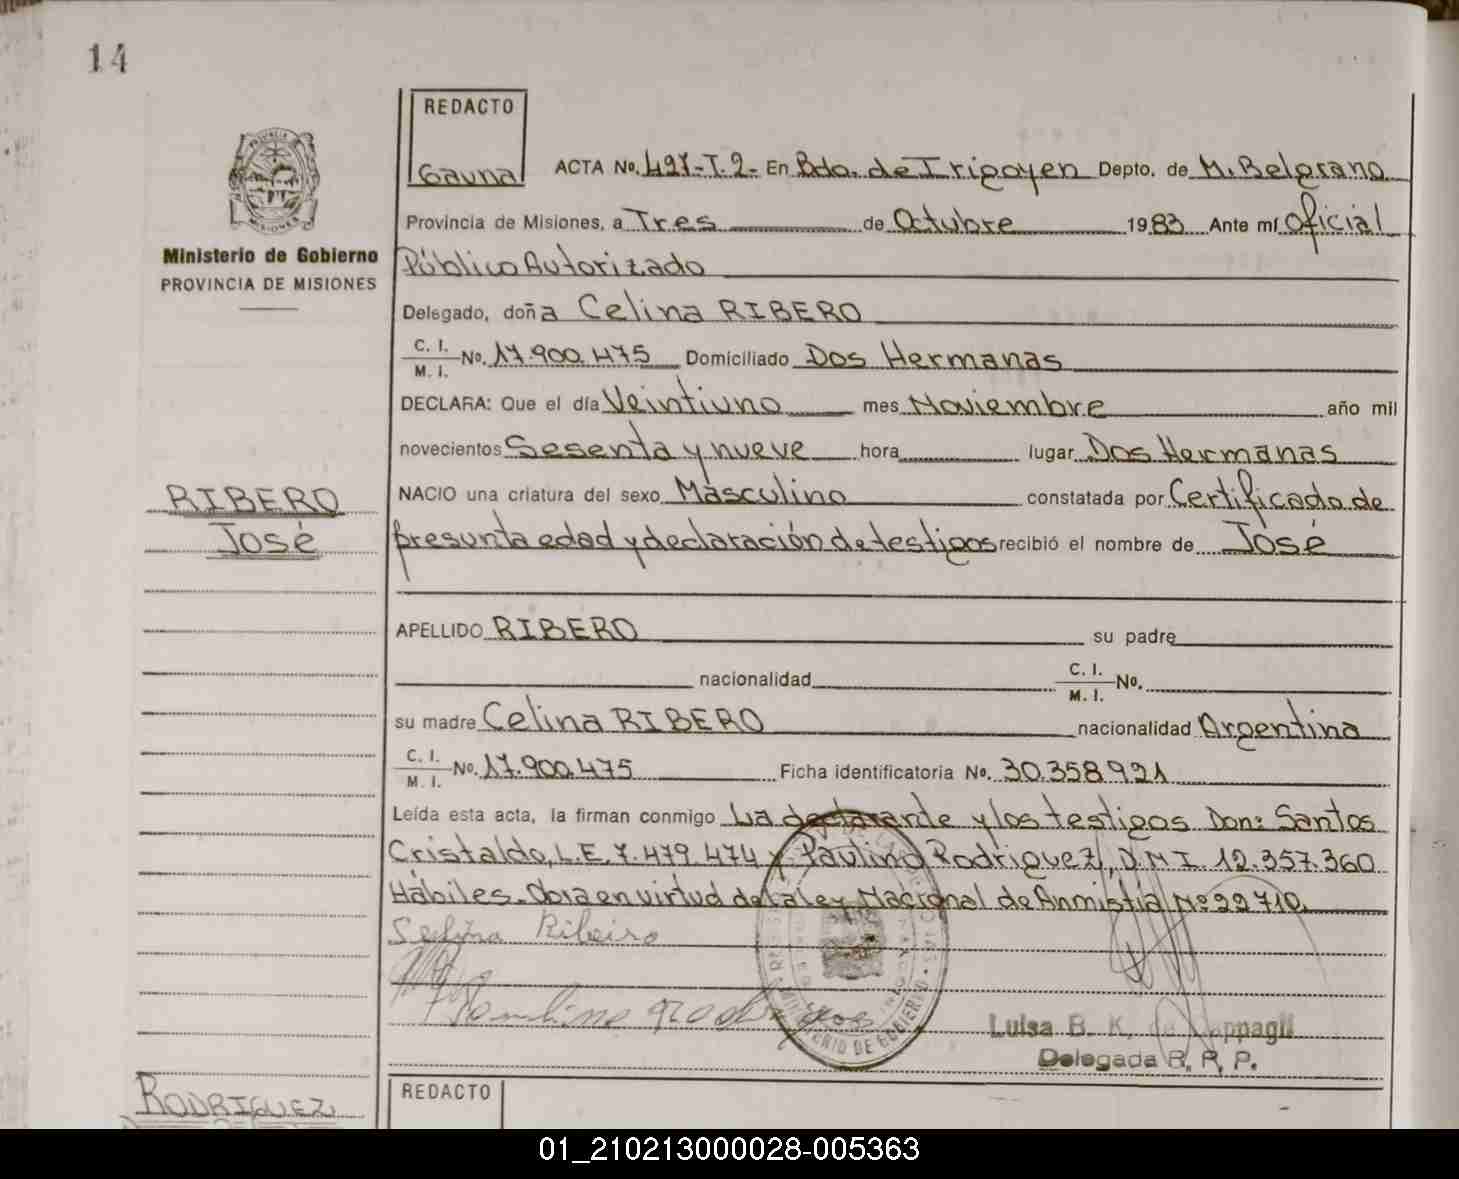 14
REDACTO
Gauna
ACTA No. 491-T.2- En Bdo. de Irigoyen Depto. de M. Belgrano
Provincia de Misiones, a Tres de Octubre 1983 Ante mí Oficial
Ministerio de Gobierno
PROVINCIA DE MISIONES
Público Autorizado
Delegado, doña Celina RIBERO
C. I.
M. I. No. 17.900.475 Domiciliado Dos Hermanas
DECLARA: Que el día Veintiuno mes Noviembre año mil
novecientos Sesenta y nueve hora lugar Dos Hermanas
RIBERO
José
NACIO una criatura del sexo Masculino constatada por Certificado de
presunta edad y declaración de testigos recibió el nombre de José
APELLIDO RIBERO su padre
nacionalidad C. I.
M. I. No.
su madre Celina RIBERO nacionalidad Argentina
C. I.
M. I. No. 17.900.475 Ficha identificatoria No. 30.358.921
Leída esta acta, la firman conmigo La declarante y los testigos Don: Santos
Cristaldo, L.E. 7.479.474 y Paulino Rodriguez, D.N.I. 12.357.360
Hábiles. Obra en virtud de la ley Nacional de Anmistia Nº 22710
Ribeiro
MINISTERIO DE GOBIERNO
Luisa B. K. de
Delegada R. P. P.
RODRIGUEZ
REDACTO
01_210213000028-005363